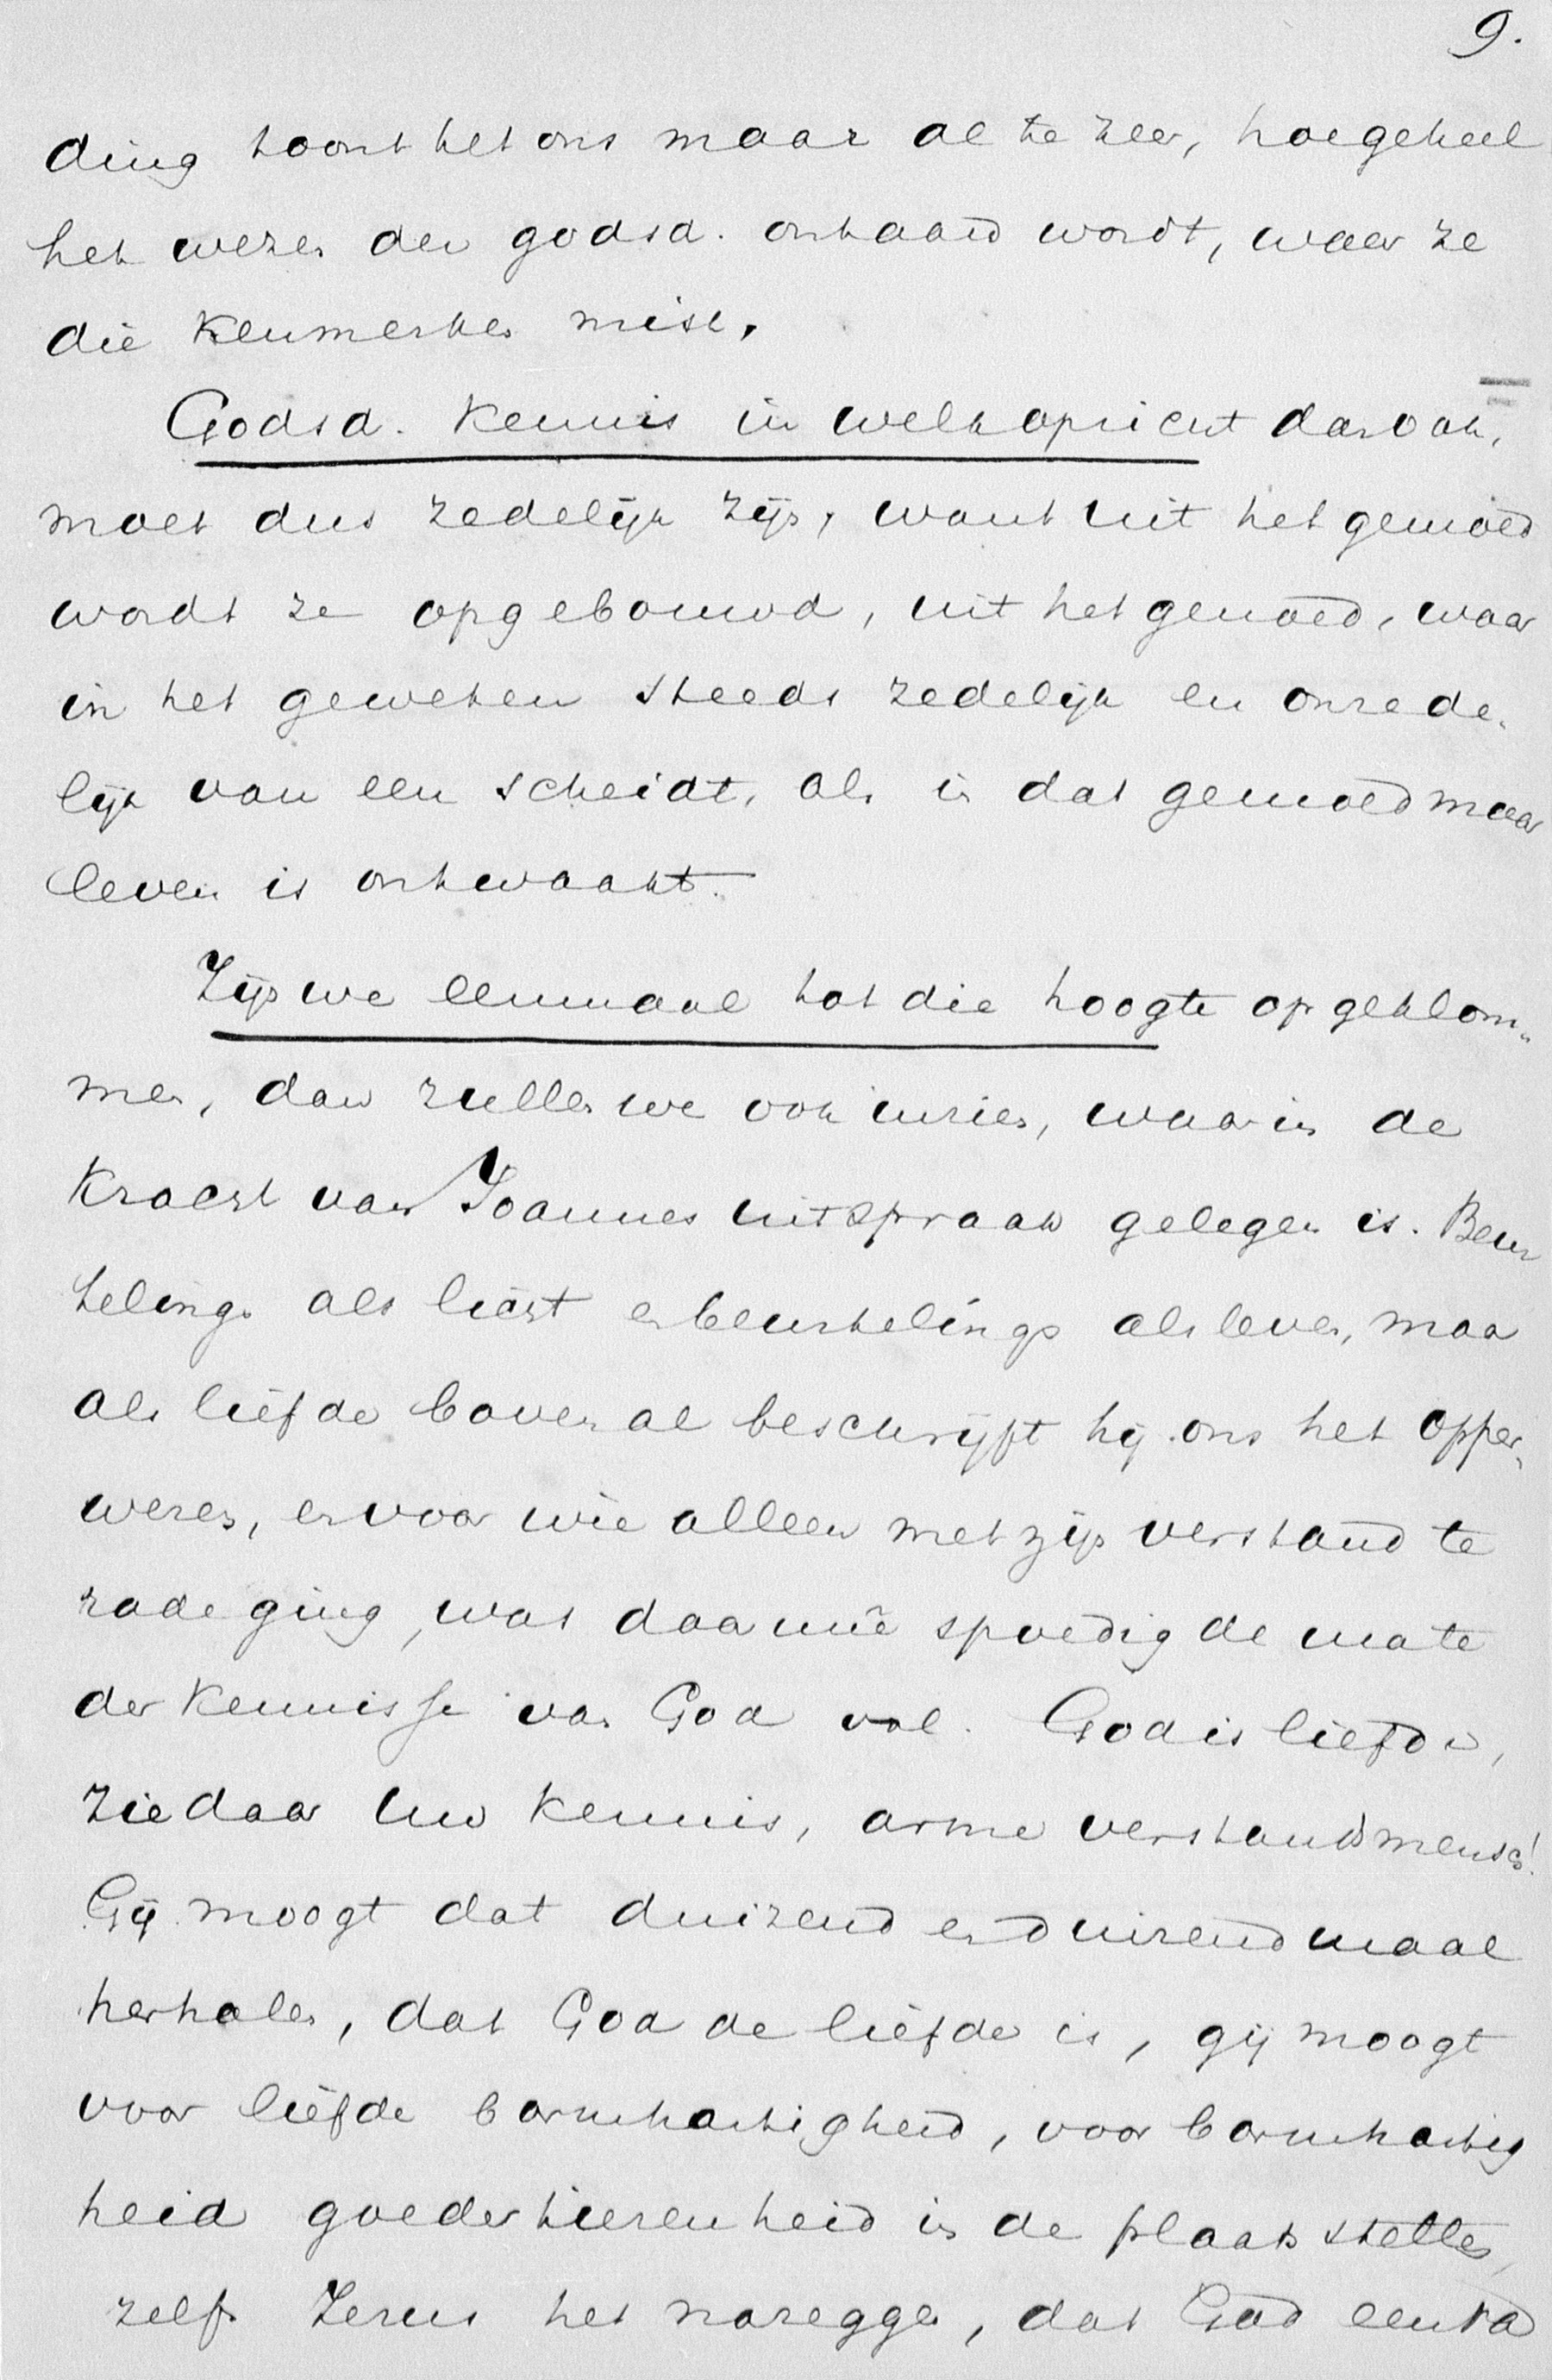 9.
ding toont het ons maar al te zeer, hoe geheel
het wezen der godsd. ontaard wordt, waar ze
die kenmerken mist.
Godsd. kennis in welk opzicht dan ook,
moet dus zedelijk zijn, want uit het gemoed
wordt ze opgebouwd, uit het gemoed, waar
in het geweten steeds zedelijk en onzede-
lijk van een scheidt, als in dat gemoed maar
leven is ontwaakt.
Zijn we eenmaal tot die hoogte opgeklom-
men, dan zullen we ook inzien, waarin de
kracht van Joannes uitspraak gelegen is. Beur
telings als licht en beurtelings als leven, maar
als liefde bovenal beschrijft hij ons het Opper-
wezen, en voor wie alleen met zijn verstand te
rade ging, was daarmeê spoedig de mate
der kennisse van God vol. God is liefde,
ziedaar Uw kennis, arme verstandsmensch!
Gij moogt dat duizend en duizendmaal
herhalen, dat God de liefde is, gij moogt
voor liefde barmhartigheid, voor barmhartig
heid goedertierenheid in de plaats stellen,
zelfs Jezus het nazeggen, dat God een Va